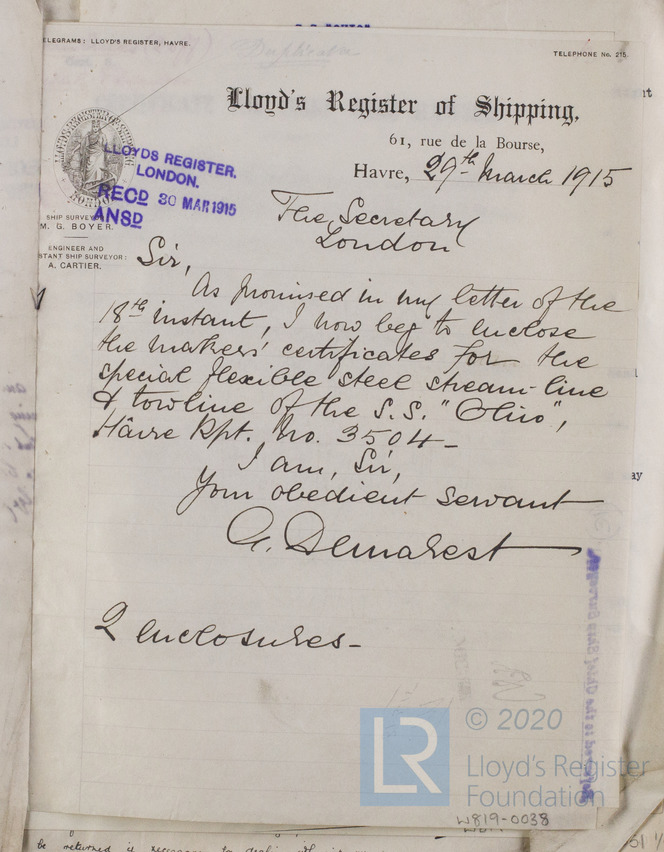 ELEGRAMS: LLOYD'S REGISTER, HAVRE.
TELEPHONE No. 215.
Duplicate
Lloyd's Register of Shipping,
61, rue de la Bourse,
Havre, 29th March 1915
LLOYDS REGISTER.
LONDON.
RECD 30 MAR 1915
ANSD
SHIP SURVEYOR
M. G. BOYER.
ENGINEER AND
STANT SHIP SURVEYOR:
A. CARTIER.
The Secretary
London
Sir,
As promised in my letter of the
18th instant, I now beg to enclose
the makers' certificates for the
special flexible steel stream-line
& towline of the S.S. "Ohio",
Hâvre Rpt. No. 3504-
I am, Sir,
Your obedient servant
G. Demarest
2 enclosures-
© 2020
LR
Lloyd's Register
Foundation
W819-0038
be returned is necessary to deal with